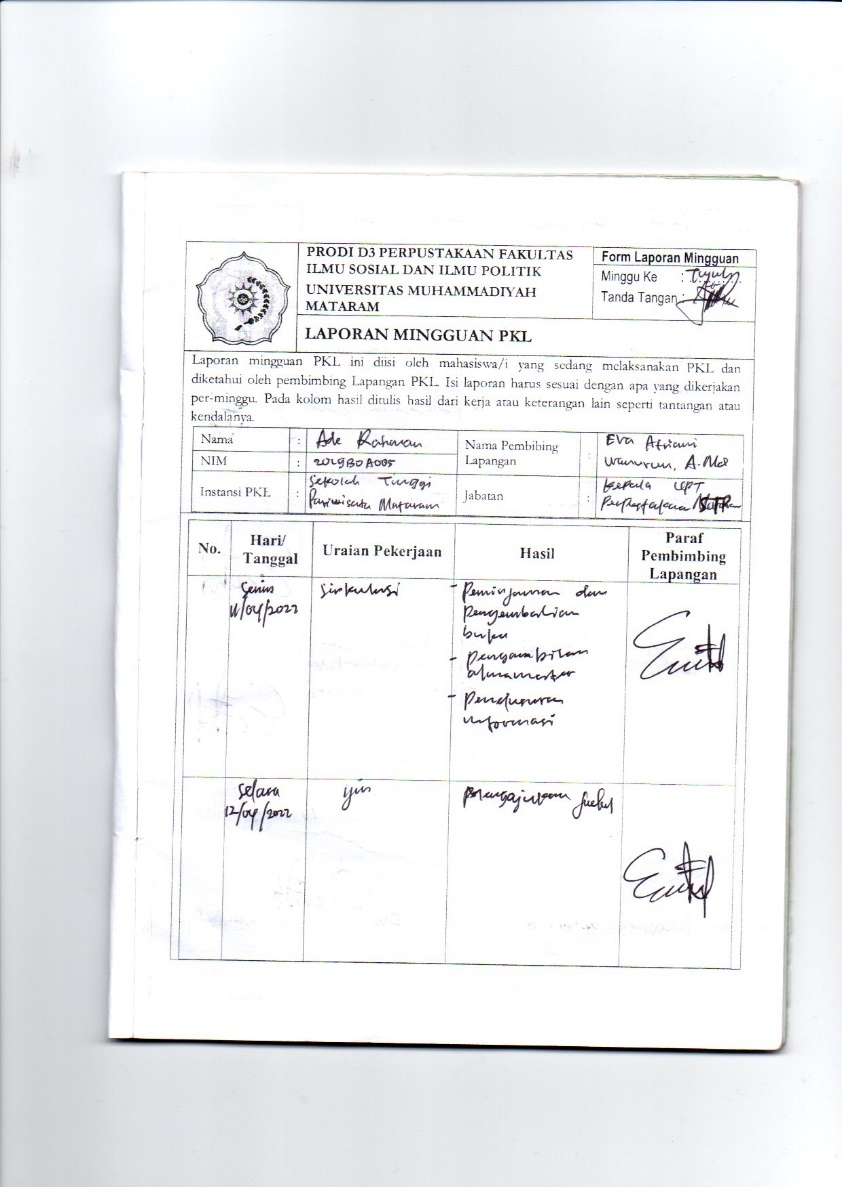 PRODI D3 PERPUSTAKAAN FAKULTAS
ILMU SOSIAL DAN ILMU POLITIK
UNIVERSITAS MUHAMMADIYAH
MATARAM
LAPORAN MINGGUAN PKL
Form Laporan Mingguan
Minggu Ke :
Tanda Tangan :
Laporan mingguan PKL ini diisi oleh mahasiswa/i yang sedang melaksanakan PKL dan
diketahui oleh pembimbing Lapangan PKL. Isi laporan harus sesuai dengan apa yang dikerjakan
per-minggu. Pada kolom hasil ditulis hasil dari kerja atau keterangan lain seperti tantangan atau
kendalanya.
Nama : Ade Rahman
NIM : 2019B0A005
Instansi PKL : Sekolah Tinggi
Pariwisata Mataram
Nama Pembibing
Lapangan : Eva Afriani
A.Md
Jabatan : Kepala UPT
No.
Hari/
Tanggal
Uraian Pekerjaan
Hasil
Paraf
Pembimbing
Lapangan
Senin
11/04/2022
Sirkulasi
- Peminjaman dan
Pengembalian
buku
- Pengambilan
almamater
- Penelusuran
informasi
Selasa
12/04/2022
ijin